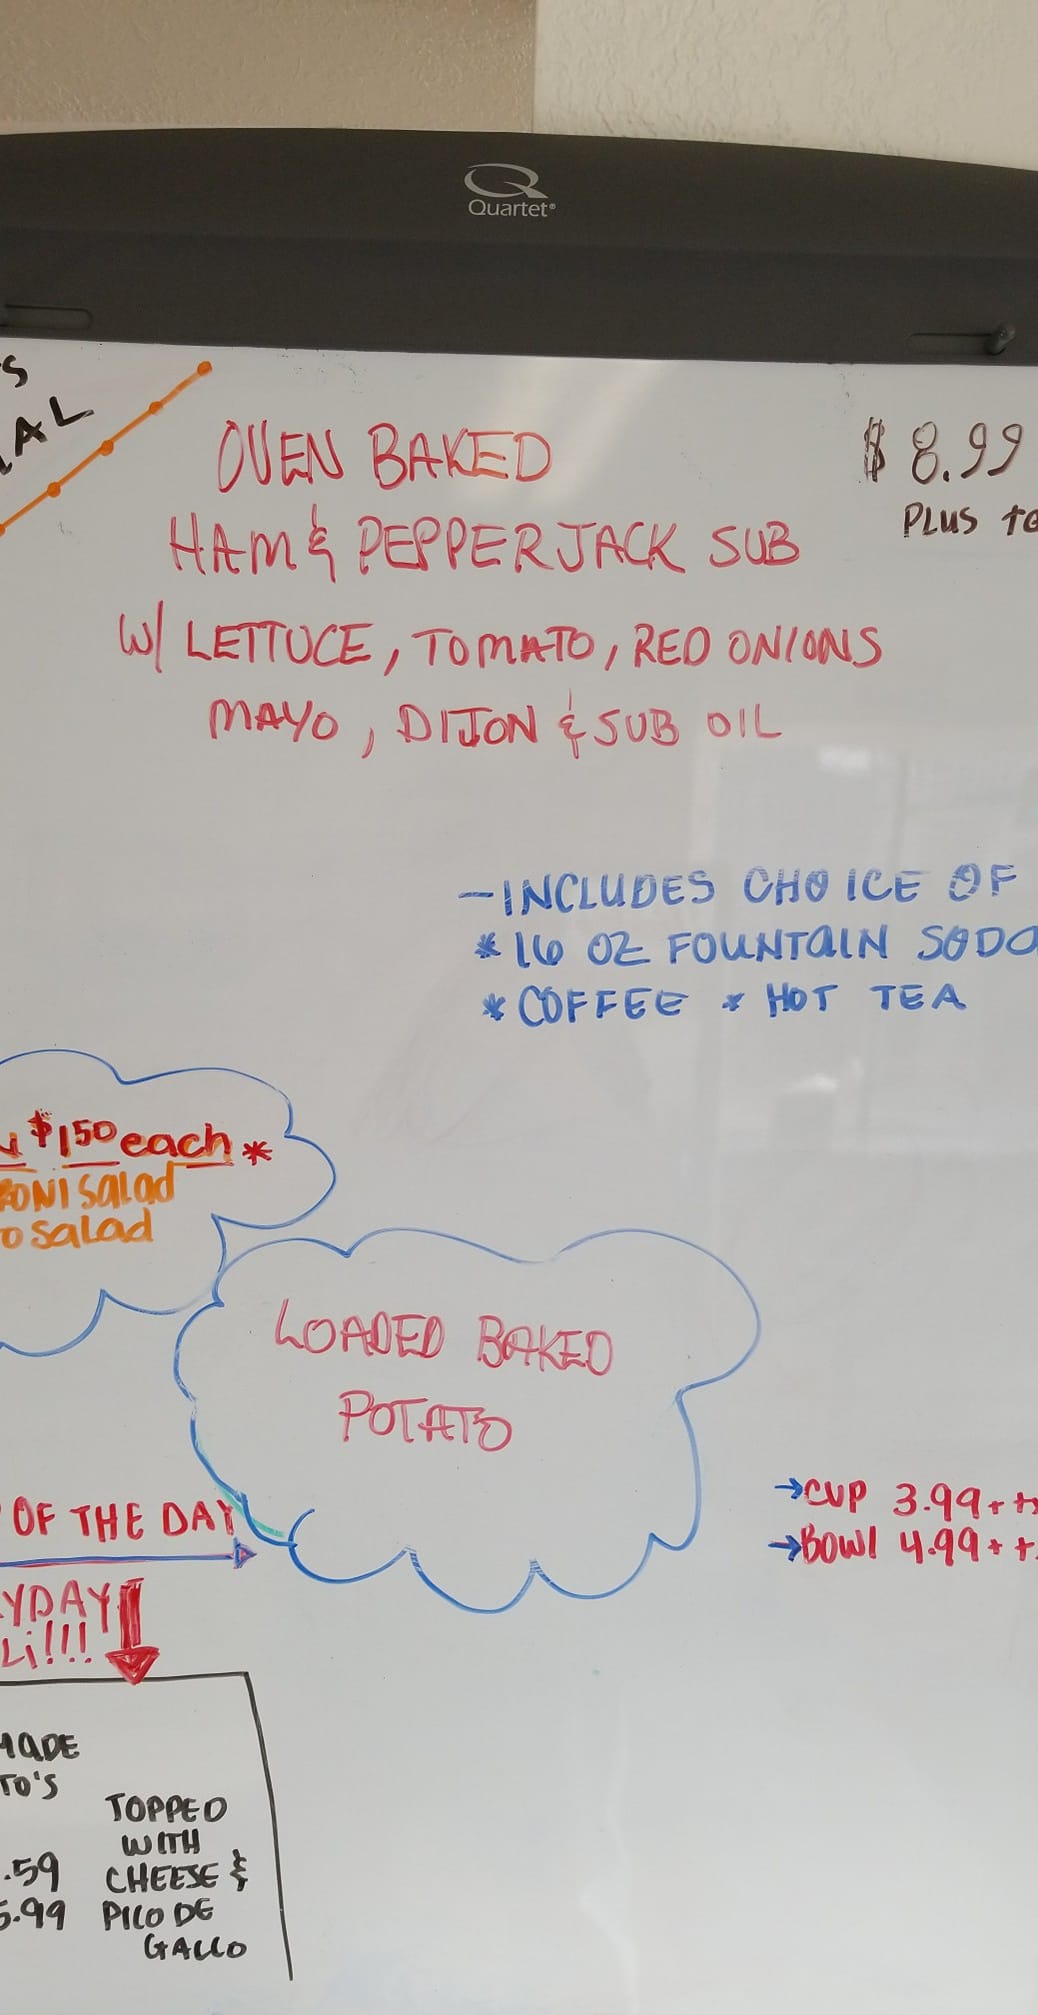 Quartet®
OVEN BAKED
$8.99
HAM & PEPPERJACK SUB
PLUS
W/ LETTUCE, TOMATO, RED ONIONS
MAYO, DIJON & SUB OIL
-INCLUDES CHOICE OF
* 16 OZ FOUNTAIN
* COFFEE * HOT TEA
$1.50 each *
salad
salad
LOADED BAKED
POTATO
OF THE DAY
→CUP 3.99+
→BOWl 4.99+
TOPPED
WITH
CHEESE &
PICO DE
GALLO